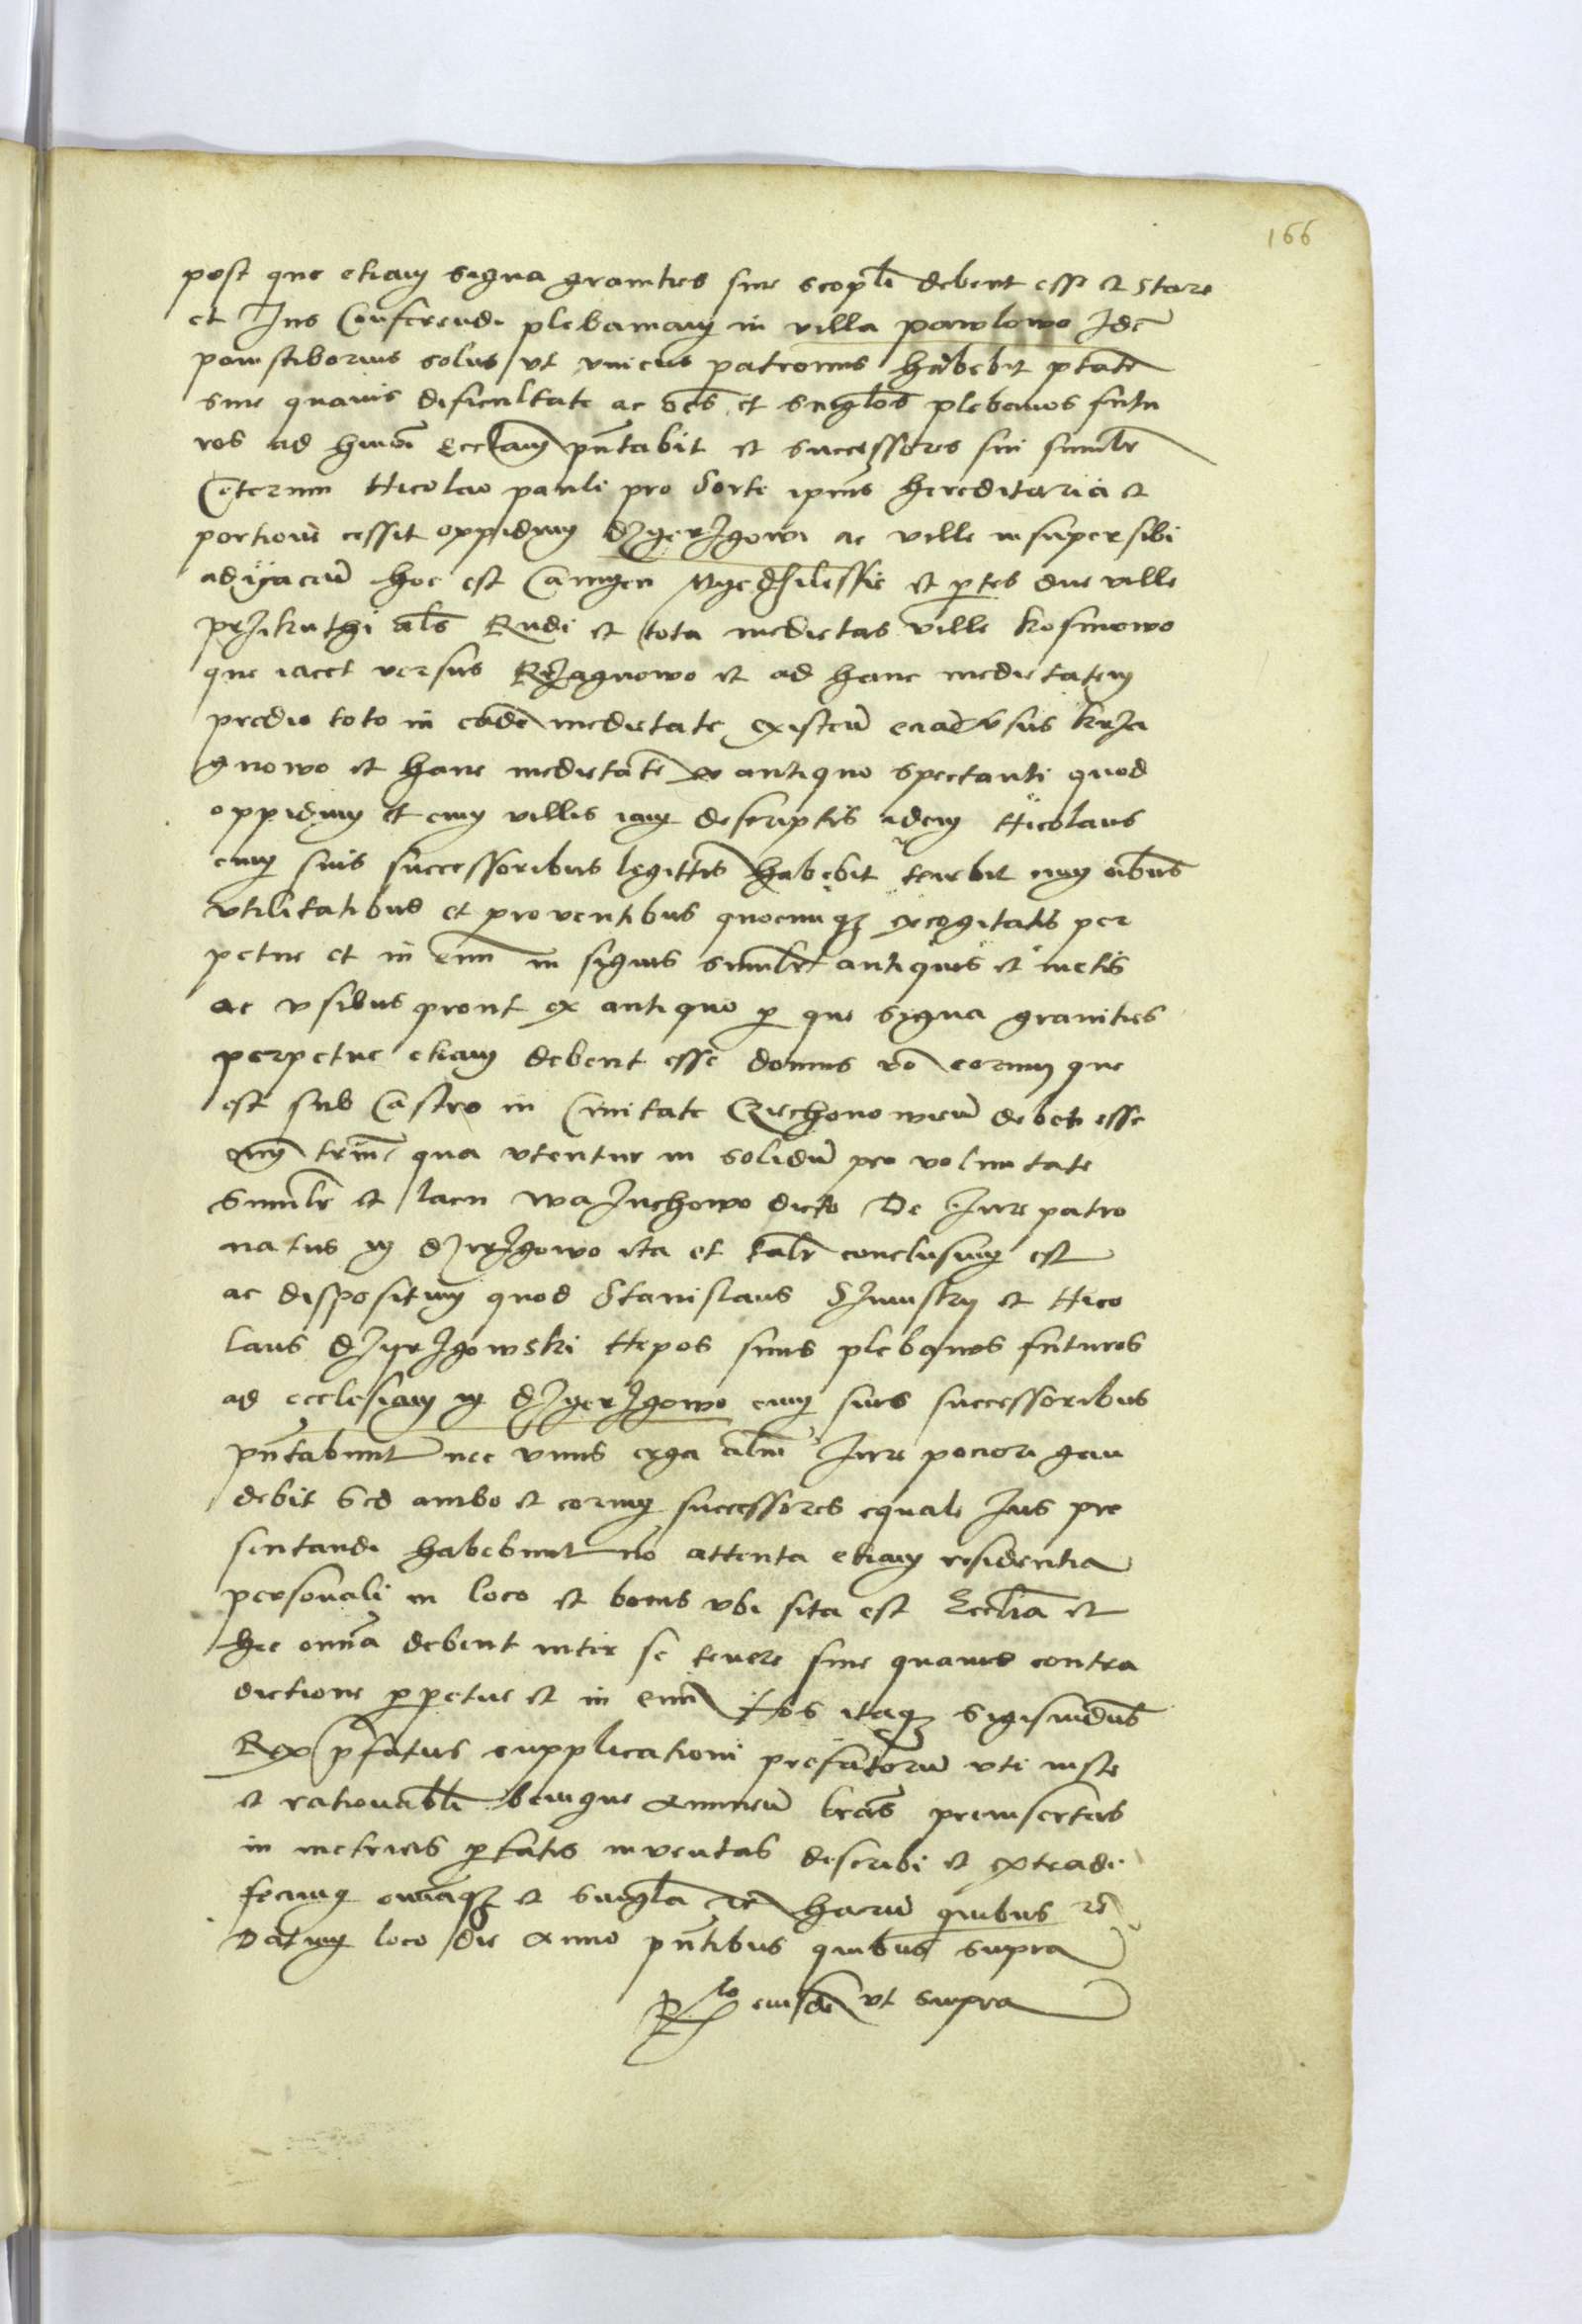 166
post que etiam signa granities sive scopuli debent esse et stare
et Ius Conferendi plebaniam in villa pawlowo Idē
panstiborius solus vt vnicus patronus habebit ptātē
sine quavis dificultate ac oēs et singlos plebanos futu
ros ad hmōi eccłiam pñtabit et successores sui similr
Ceterum Nicolao pauli pro sorte ipius hereditaria et
portioni cessit oppidum dzyerzgowi ac ville insuper sibi
adiacen̄ hoc est et ptes due ville
przikuthi als Rudi et tota medietas ville kosmowo
que iacet versus Krzagnowo et ad hanc medietatem
predio toto in eadē medietate existen̄ eciā vsus krza
gnowo et hanc medietatē ex antiquo spectanti quod
oppidum et cum villis iam descriptis idem Nicolaus
cum suis successoribus legittis habebit tenebit cum oībus
vtilitatibus et proventibus quocunqz excogitatis per
petue et in evū in signis similr antiquis et metis
ac vsibus pront ex antiquo p que signa granities
perpetue etiam debent esse domus vo eorum que
est sub Castro in Civitate Czechonowien̄ debet esse
qua vtentur in solidū pro voluntate
Similr et lacu dicto De Iure patro
natus in dzyrzgowo ita et talr conclusum est
ac dispositum quod Stanislaus et Nico
laus dzyrzgowski Nepos suus plebanos futuros
ad ecclesiam in dzyerzgowo cum suis successoribus
pñtabunt nec vnus erga alm̄ Iure pociori gau
debit Sed ambo et eorum successores equale Ius pre
sentandi habebunt no attenta etiam residentia
personali in loco et bonis vbi sita est Eccłia et
hec omīa debent inter se tenere sine quavis contra
dictione ppetue et in evū Nos itaqz Sigismudus
Rex pfatus supplicationi prefatorū vti iuste
et rationabli benigne annuen̄ lrās preinsertas
in metricis ptatis inventas describi et extradi
fecimus omīaqz et singla rē harū quibus rē
Datum loco die Anno pñtibus quibus supra
Rlo eiusdē vt supra